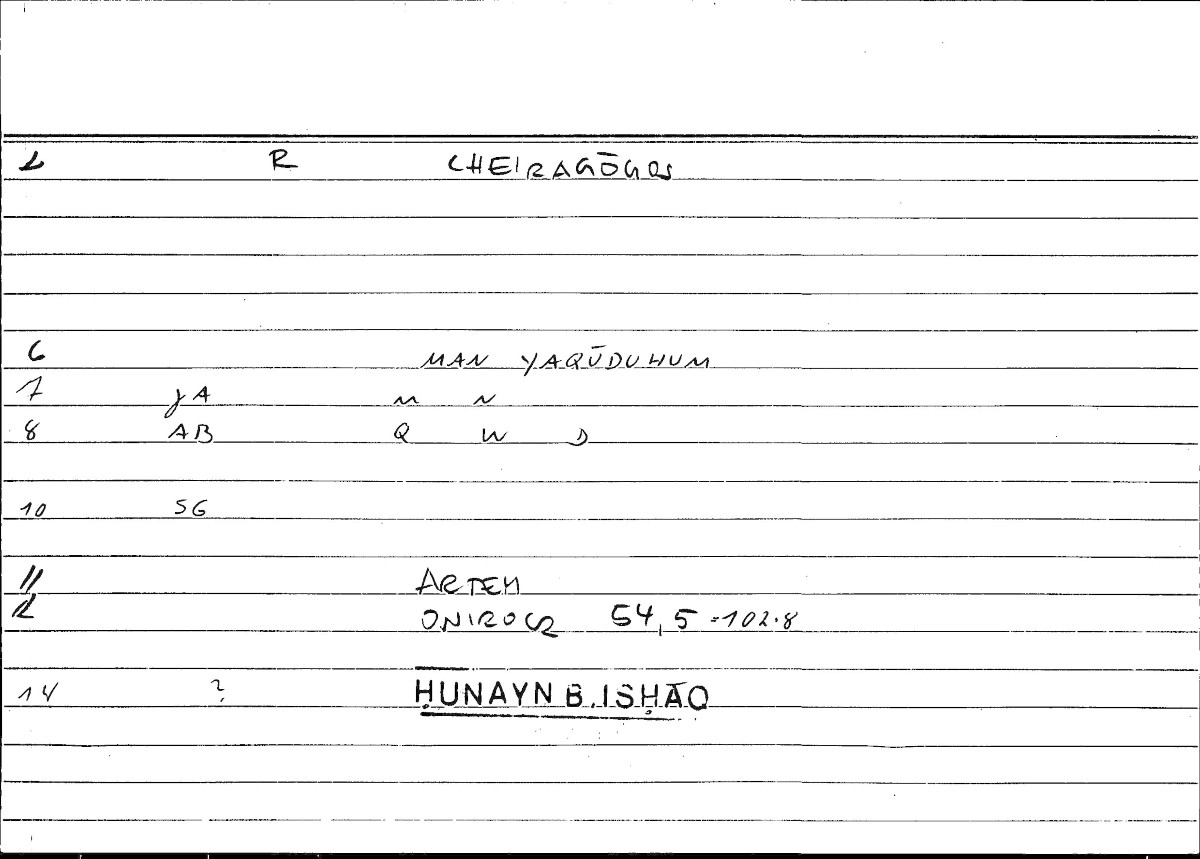 1 R CHEIRAGŌGOS
6 MAN YAQŪDUHUM
7 YA M N
8 AB Q W D
10 SG
11 ARTEM
12 ONIROCR 54,5 = 102.8
14 ? ḤUNAYN B. ISḤĀQ